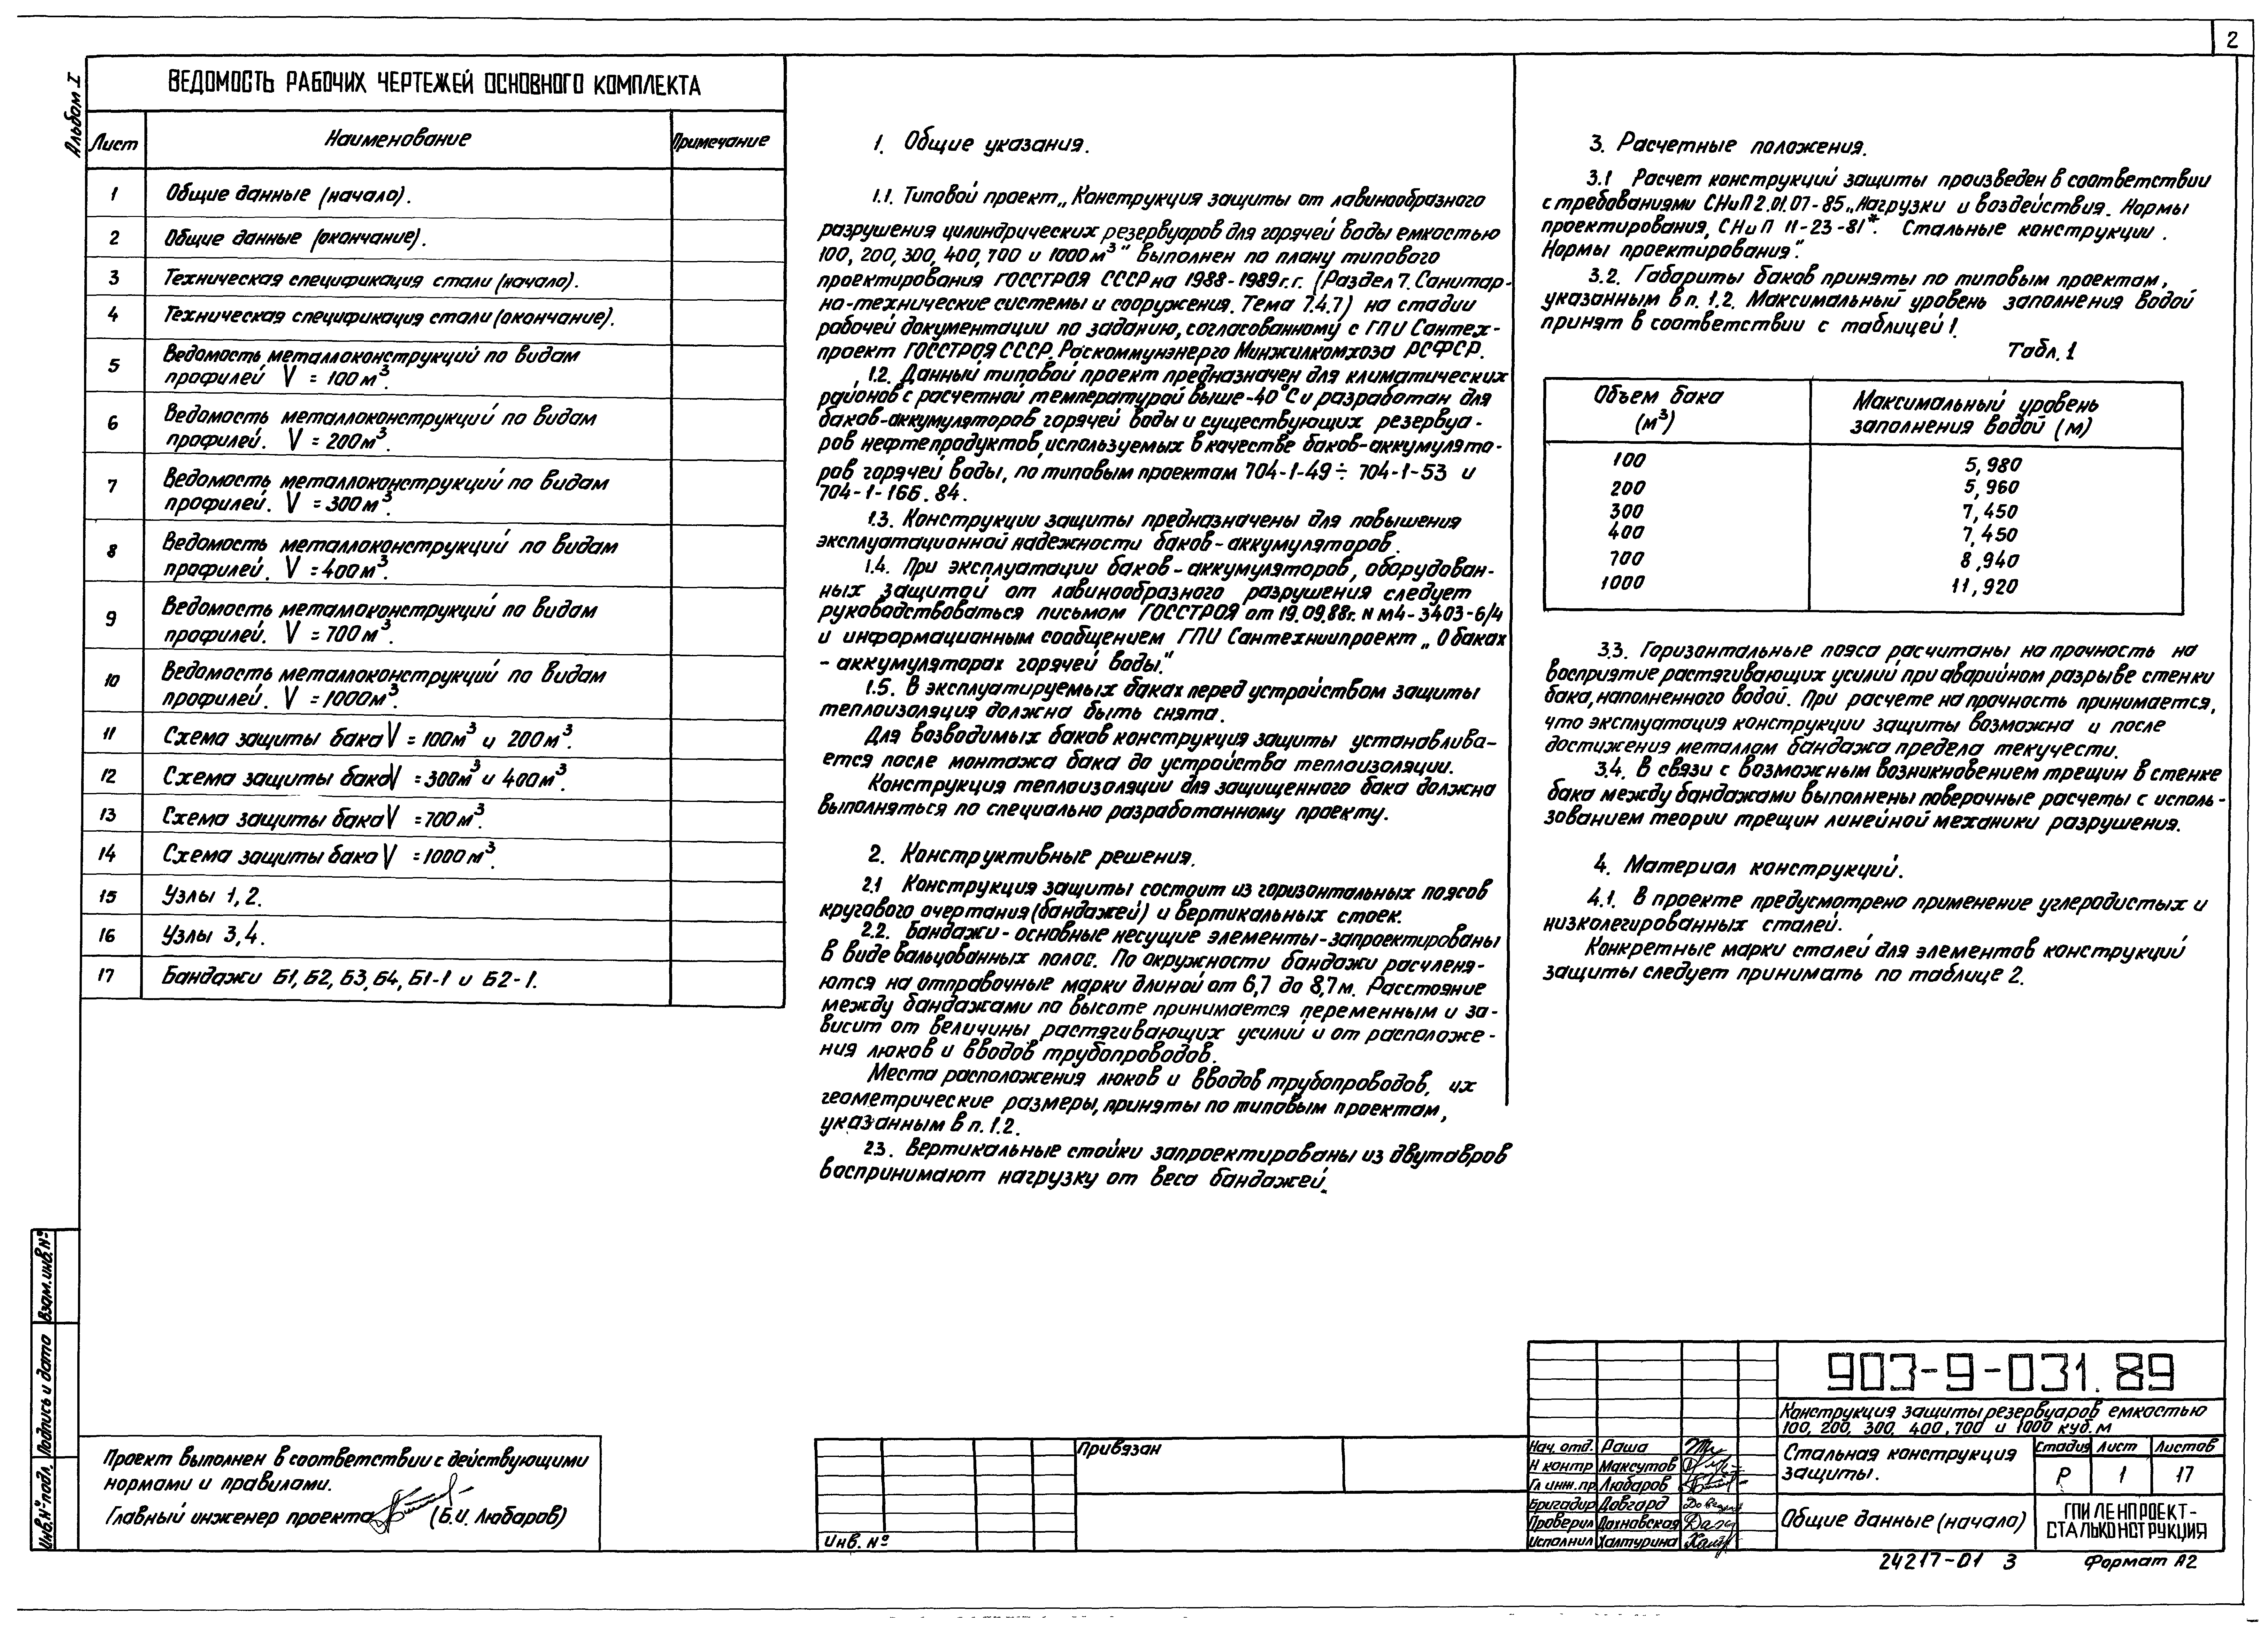 2
Альбом I
ВЕДОМОСТЬ РАБОЧИХ ЧЕРТЕЖЕЙ ОСНОВНОГО КОМПЛЕКТА
Лист Наименование Примечание
1 Общие данные (начало).
2 Общие данные (окончание).
3 Техническая спецификация стали (начало).
4 Техническая спецификация стали (окончание).
5 Ведомость металлоконструкций по видам
профилей V = 100м³.
6 Ведомость металлоконструкций по видам
профилей. V = 200м³.
7 Ведомость металлоконструкций по видам
профилей. V = 300м³.
8 Ведомость металлоконструкций по видам
профилей. V = 400м³.
9 Ведомость металлоконструкций по видам
профилей. V = 700м³.
10 Ведомость металлоконструкций по видам
профилей. V = 1000м³.
11 Схема защиты бака V = 100м³ и 200м³.
12 Схема защиты бака V = 300м³ и 400м³.
13 Схема защиты бака V = 700м³.
14 Схема защиты бака V = 1000м³.
15 Узлы 1, 2.
16 Узлы 3, 4.
17 Бандажи Б1, Б2, Б3, Б4, Б1-1 и Б2-1.
1. Общие указания.
1.1. Типовой проект „Конструкция защиты от лавинообразного
разрушения цилиндрических резервуаров для горячей воды емкостью
100, 200, 300, 400, 700 и 1000м³" выполнен по плану типового
проектирования ГОССТРОЯ СССР на 1988-1989г.г. (Раздел 7. Санитар-
но-технические системы и сооружения. Тема 7.4.7) на стадии
рабочей документации по заданию, согласованному с ГПИ Сантех-
проект ГОССТРОЯ СССР. Роскоммунэнерго Минжилкомхоза РСФСР.
1.2. Данный типовой проект предназначен для климатических
районов с расчетной температурой выше -40°С и разработан для
баков-аккумуляторов горячей воды и существующих резервуа-
ров нефтепродуктов, используемых в качестве баков-аккумулято-
ров горячей воды, по типовым проектам 704-1-49 ÷ 704-1-53 и
704-1-166.84.
1.3. Конструкции защиты предназначены для повышения
эксплуатационной надежности баков-аккумуляторов.
1.4. При эксплуатации баков-аккумуляторов, оборудован-
ных защитой от лавинообразного разрушения следует
руководствоваться письмом ГОССТРОЯ от 19.09.88г. N М4-3403-6/4
и информационным сообщением ГПИ Сантехниипроект „О баках
- аккумуляторах горячей воды."
1.5. В эксплуатируемых баках перед устройством защиты
теплоизоляция должна быть снята.
Для возводимых баков конструкция защиты устанавлива-
ется после монтажа бака до устройства теплоизоляции.
Конструкция теплоизоляции для защищенного бака должна
выполняться по специально разработанному проекту.
2. Конструктивные решения.
2.1 Конструкция защиты состоит из горизонтальных поясов
кругового очертания (бандажей) и вертикальных стоек.
2.2. Бандажи - основные несущие элементы - запроектированы
в виде вальцованных полос. По окружности бандажи расчленя-
ются на отправочные марки длиной от 6,7 до 8,7м. Расстояние
между бандажами по высоте принимается переменным и за-
висит от величины растягивающих усилий и от расположе-
ния люков и вводов трубопроводов.
Места расположения люков и вводов трубопроводов, их
геометрические размеры, приняты по типовым проектам,
указанным в п. 1.2.
2.3. Вертикальные стойки запроектированы из двутавров
воспринимают нагрузку от веса бандажей.
3. Расчетные положения.
3.1 Расчет конструкций защиты произведен в соответствии
с требованиями СНиП 2.01.07-85 „Нагрузки и воздействия. Нормы
проектирования, СНиП II-23-81*. Стальные конструкции.
Нормы проектирования".
3.2. Габариты баков приняты по типовым проектам,
указанным в п. 1.2. Максимальный уровень заполнения водой
принят в соответствии с таблицей 1.
Табл. 1
Объем бака (м³) Максимальный уровень заполнения водой (м)
100 5,980
200 5,960
300 7,450
400 7,450
700 8,940
1000 11,920
3.3. Горизонтальные пояса расчитаны на прочность на
восприятие растягивающих усилий при аварийном разрыве стенки
бака, наполненного водой. При расчете на прочность принимается,
что эксплуатация конструкции защиты возможна и после
достижения металлом бандажа предела текучести.
3.4. В связи с возможным возникновением трещин в стенке
бака между бандажами выполнены поверочные расчеты с исполь-
зованием теории трещин линейной механики разрушения.
4. Материал конструкций.
4.1. В проекте предусмотрено применение углеродистых и
низколегированных сталей.
Конкретные марки сталей для элементов конструкций
защиты следует принимать по таблице 2.
Взам. инв. №
Подпись и дата
Инв. № подл.
Проект выполнен в соответствии с действующими
нормами и правилами.
Главный инженер проекта (Б.И. Любаров)
Привязан
Инв. №
903-9-031.89
Конструкция защиты резервуаров емкостью
100, 200, 300, 400, 700 и 1000 куб. м
Нач. отд. Раша
Н контр Максутов
Гл инж. пр. Любаров
Бригадир Довгард
Проверил Дахнавская
Исполнил Халтурина
Стальная конструкция
защиты.
Стадия Лист Листов
Р 1 17
Общие данные (начало)
ГПИ ЛЕНПРОЕКТ-
СТАЛЬКОНСТРУКЦИЯ
24217-01 3 Формат А2